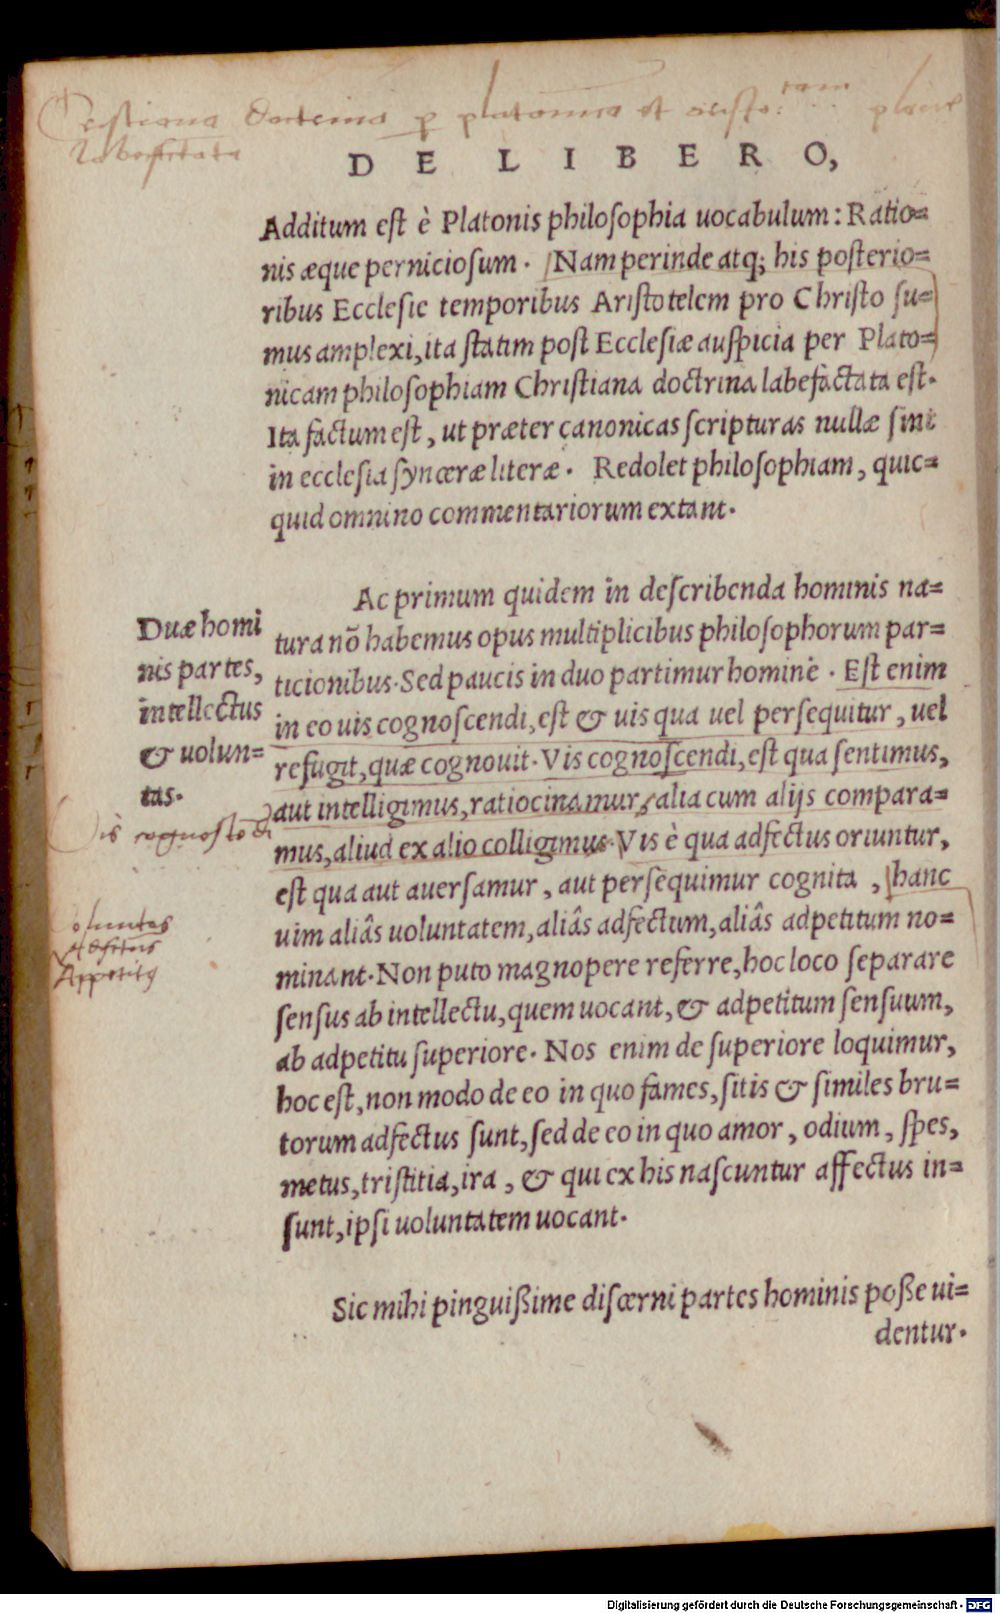 Cristiana doctrina p platonica et aristo: 
labefactata
DE LIBERO,
Additum est è Platonis philosophia uocabulum: Ratio=
nis æque perniciosum. Nam perinde atq; his posterio=
ribus Ecclesie temporibus Aristotelem pro Christo su=
mus amplexi, ita statim post Ecclesiæ auspicia per Plato=
nicam philosophiam Christiana doctrina labefactata est.
Ita factum est, ut præter canonicas scripturas nullæ sint
in ecclesia syncœræ literæ. Redolet philosophiam, quic=
quid omnino commentariorum extant.
Ac primum quidem in describenda hominis na=
tura nõ habemus opus multiplicibus philosophorum par=
ticionibus. Sed paucis in duo partimur hominẽ. Est enim
in eo uis cognoscendi, est & uis qua uel persequitur, uel
refugit, quæ cognouit. Vis cognoscendi, est qua sentimus,
aut intelligimus, ratiocinamur, alia cum alijs compara=
mus, aliud ex alio colligimus. Vis è qua adfectus oriuntur,
est qua aut auersamur, aut persequimur cognita, hanc
uim aliâs uoluntatem, aliâs adfectum, aliâs adpetitum no=
minant. Non puto magnopere referre, hoc loco separare
sensus ab intellectu, quem uocant, & adpetitum sensuum,
ab adpetitu superiore. Nos enim de superiore loquimur,
hoc est, non modo de eo in quo fames, sitis & similes bru=
torum adfectus sunt, sed de eo in quo amor, odium, spes,
metus, tristitia, ira, & qui ex his nascuntur affectus in=
sunt, ipsi uoluntatem uocant.
Sic mihi pinguißime discœrni partes hominis poße ui=
dentur.
Duæ homi
nis partes,
intellectus
& uolun=
tas.
Vis cognoscẽdi
Voluntas
Affectus
Appetitus
Digitalisierung gefördert durch die Deutsche Forschungsgemeinschaft - DFG